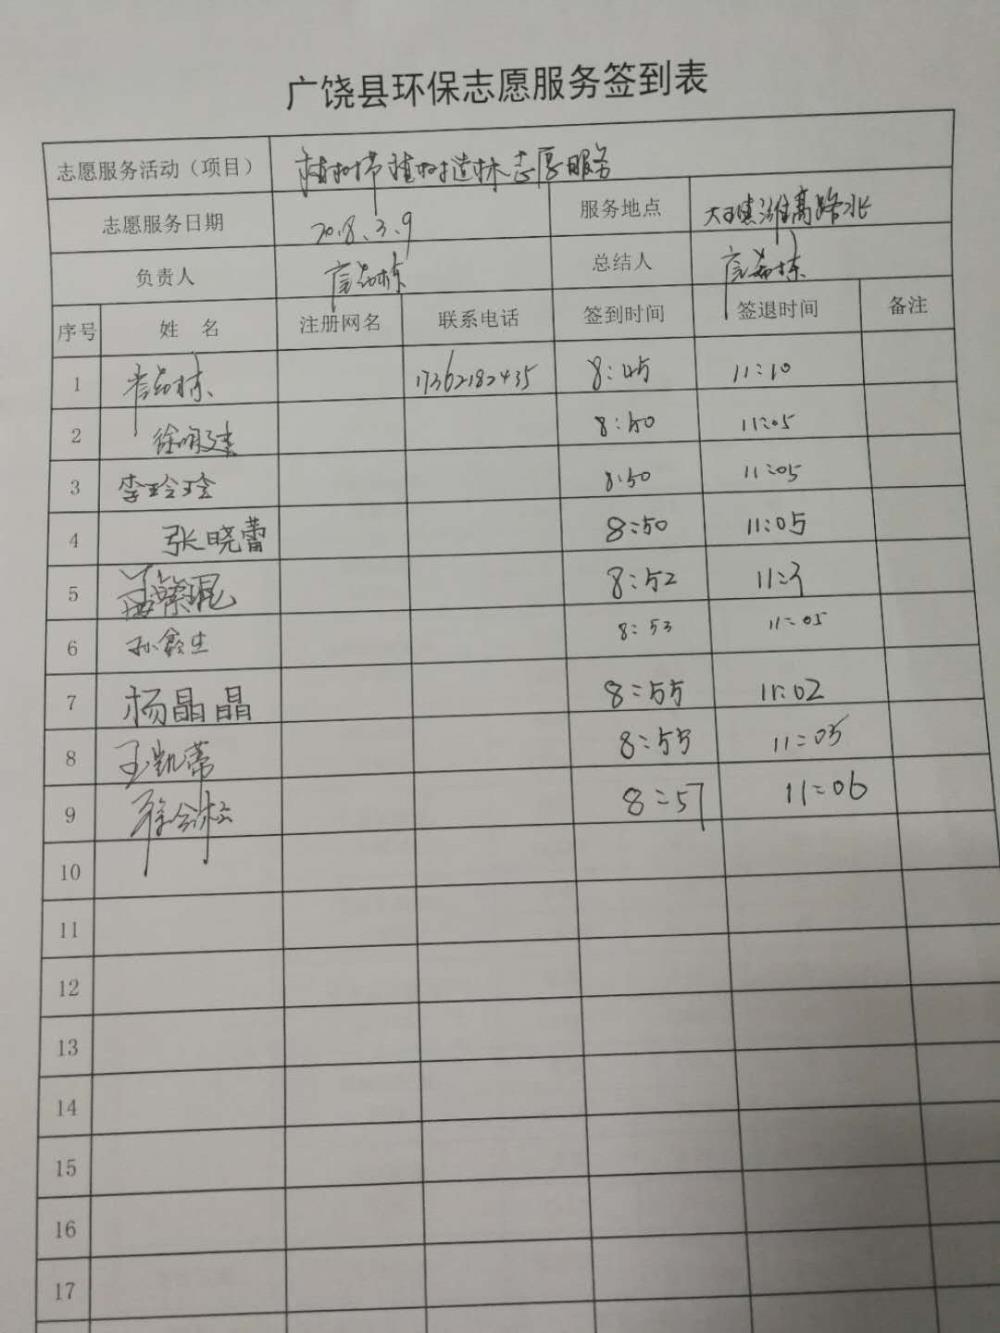 广饶县环保志愿服务签到表
志愿服务活动（项目） 植树节植树造林志愿服务
志愿服务日期 2018.3.9 服务地点 大王镇潍高路北
负责人 总结人
序号 姓 名 注册网名 联系电话 签到时间 签退时间 备注
1 17362182435 8:45 11:10
2 8:50 11:05
3 李玲玲 8:50 11:05
4 张晓蕾 8:50 11:05
5 8:52 11:3
6 孙鑫生 8:53 11:05
7 杨晶晶 8:55 11:02
8 王凯蒂 8:55 11:05
9 8:57 11:06
10
11
12
13
14
15
16
17